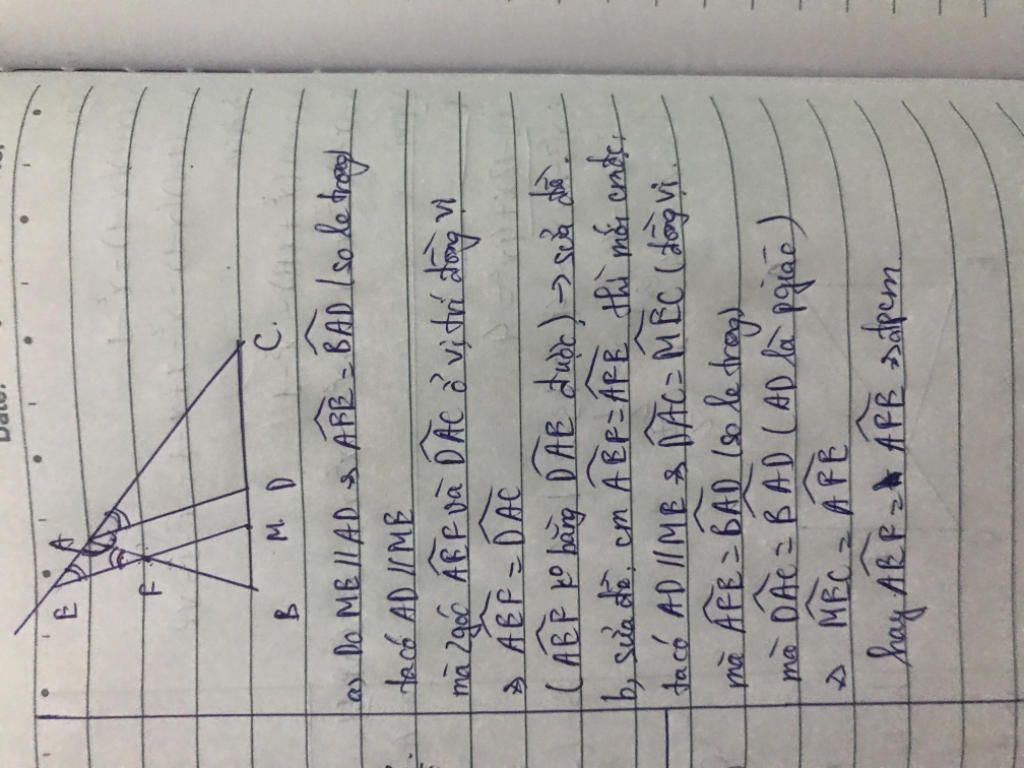 Date:
E
A
F
B
M
D
C
a, Do ME // AD ⇒ AFE = BAD (so le trong)
ta có AD // ME
mà 2 góc AEF và DAC ở vị trí đồng vị
⇒ AEF = DAC
(AEF ko bằng DAE được) → sửa đề.
b, sửa đề. cm AEF = AFE thì mới cmđc.
ta có AD // ME ⇒ DAC = MEC (đồng vị
mà AFE = BAD (so le trong)
mà DAC = BAD (AD là pgiác)
⇒ MEC = AFE
hay AEF = AFE ⇒ đpcm